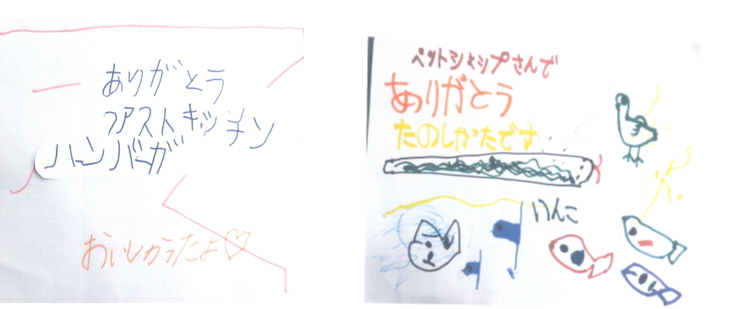 ありがとう
ファストキッチン
ハンバーガ
おいしかうたよ♡
ペットショップさんで
ありがとう
たのしかたです
いんこ